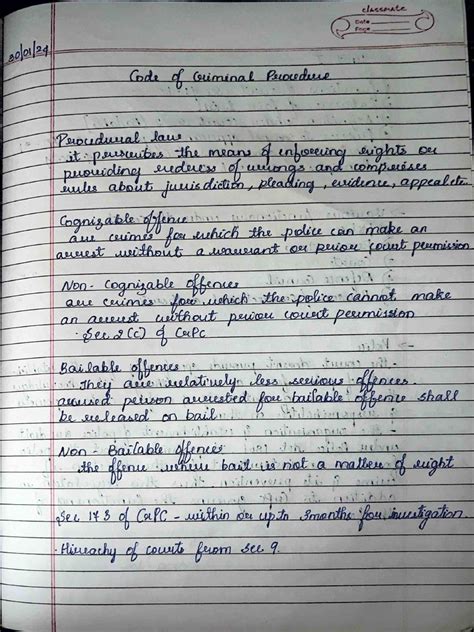 classmate
Date
Page
30/01/24
Code of Criminal Procedure
Procedural law
it prescribes the means of enforcing rights or
providing redress of wrongs and comprises
rules about jurisdiction, pleading, evidence, appeal etc
Cognizable offence
are crimes for which the police can make an
arrest without a warrant or prior court permission
Non - Cognizable Offences
are crimes for which the police cannot make
an arrest without prior court permission
· Sec 2(c) of CrPC
Bailable offences
They are relatively less serious offences.
accused person arrested for bailable offence shall
be released on bail
Non - Bailable offences
the offence where bail is not a matter of right
Sec 173 of CrPC - within or up to 3months for investigation
· Hierachy of courts from sec 9.